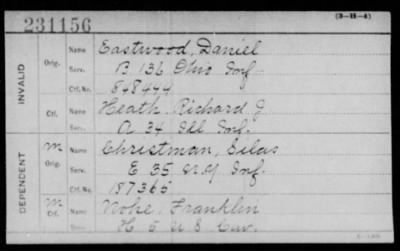 (3-11-4)
231156
INVALID
Orig. Name Eastwood, Daniel
Serv. B 136 Ohio Inf.
Ctf. No. 848444
Ctf. Name Heath, Richard J
Serv. A 34 Ill Inf.
DEPENDENT
M Orig. Name Christman, Silas
Serv. E 35 N.Y. Inf.
Ctf. No. 187365
M Ctf. Name Franklin
H 5 U S Cav.